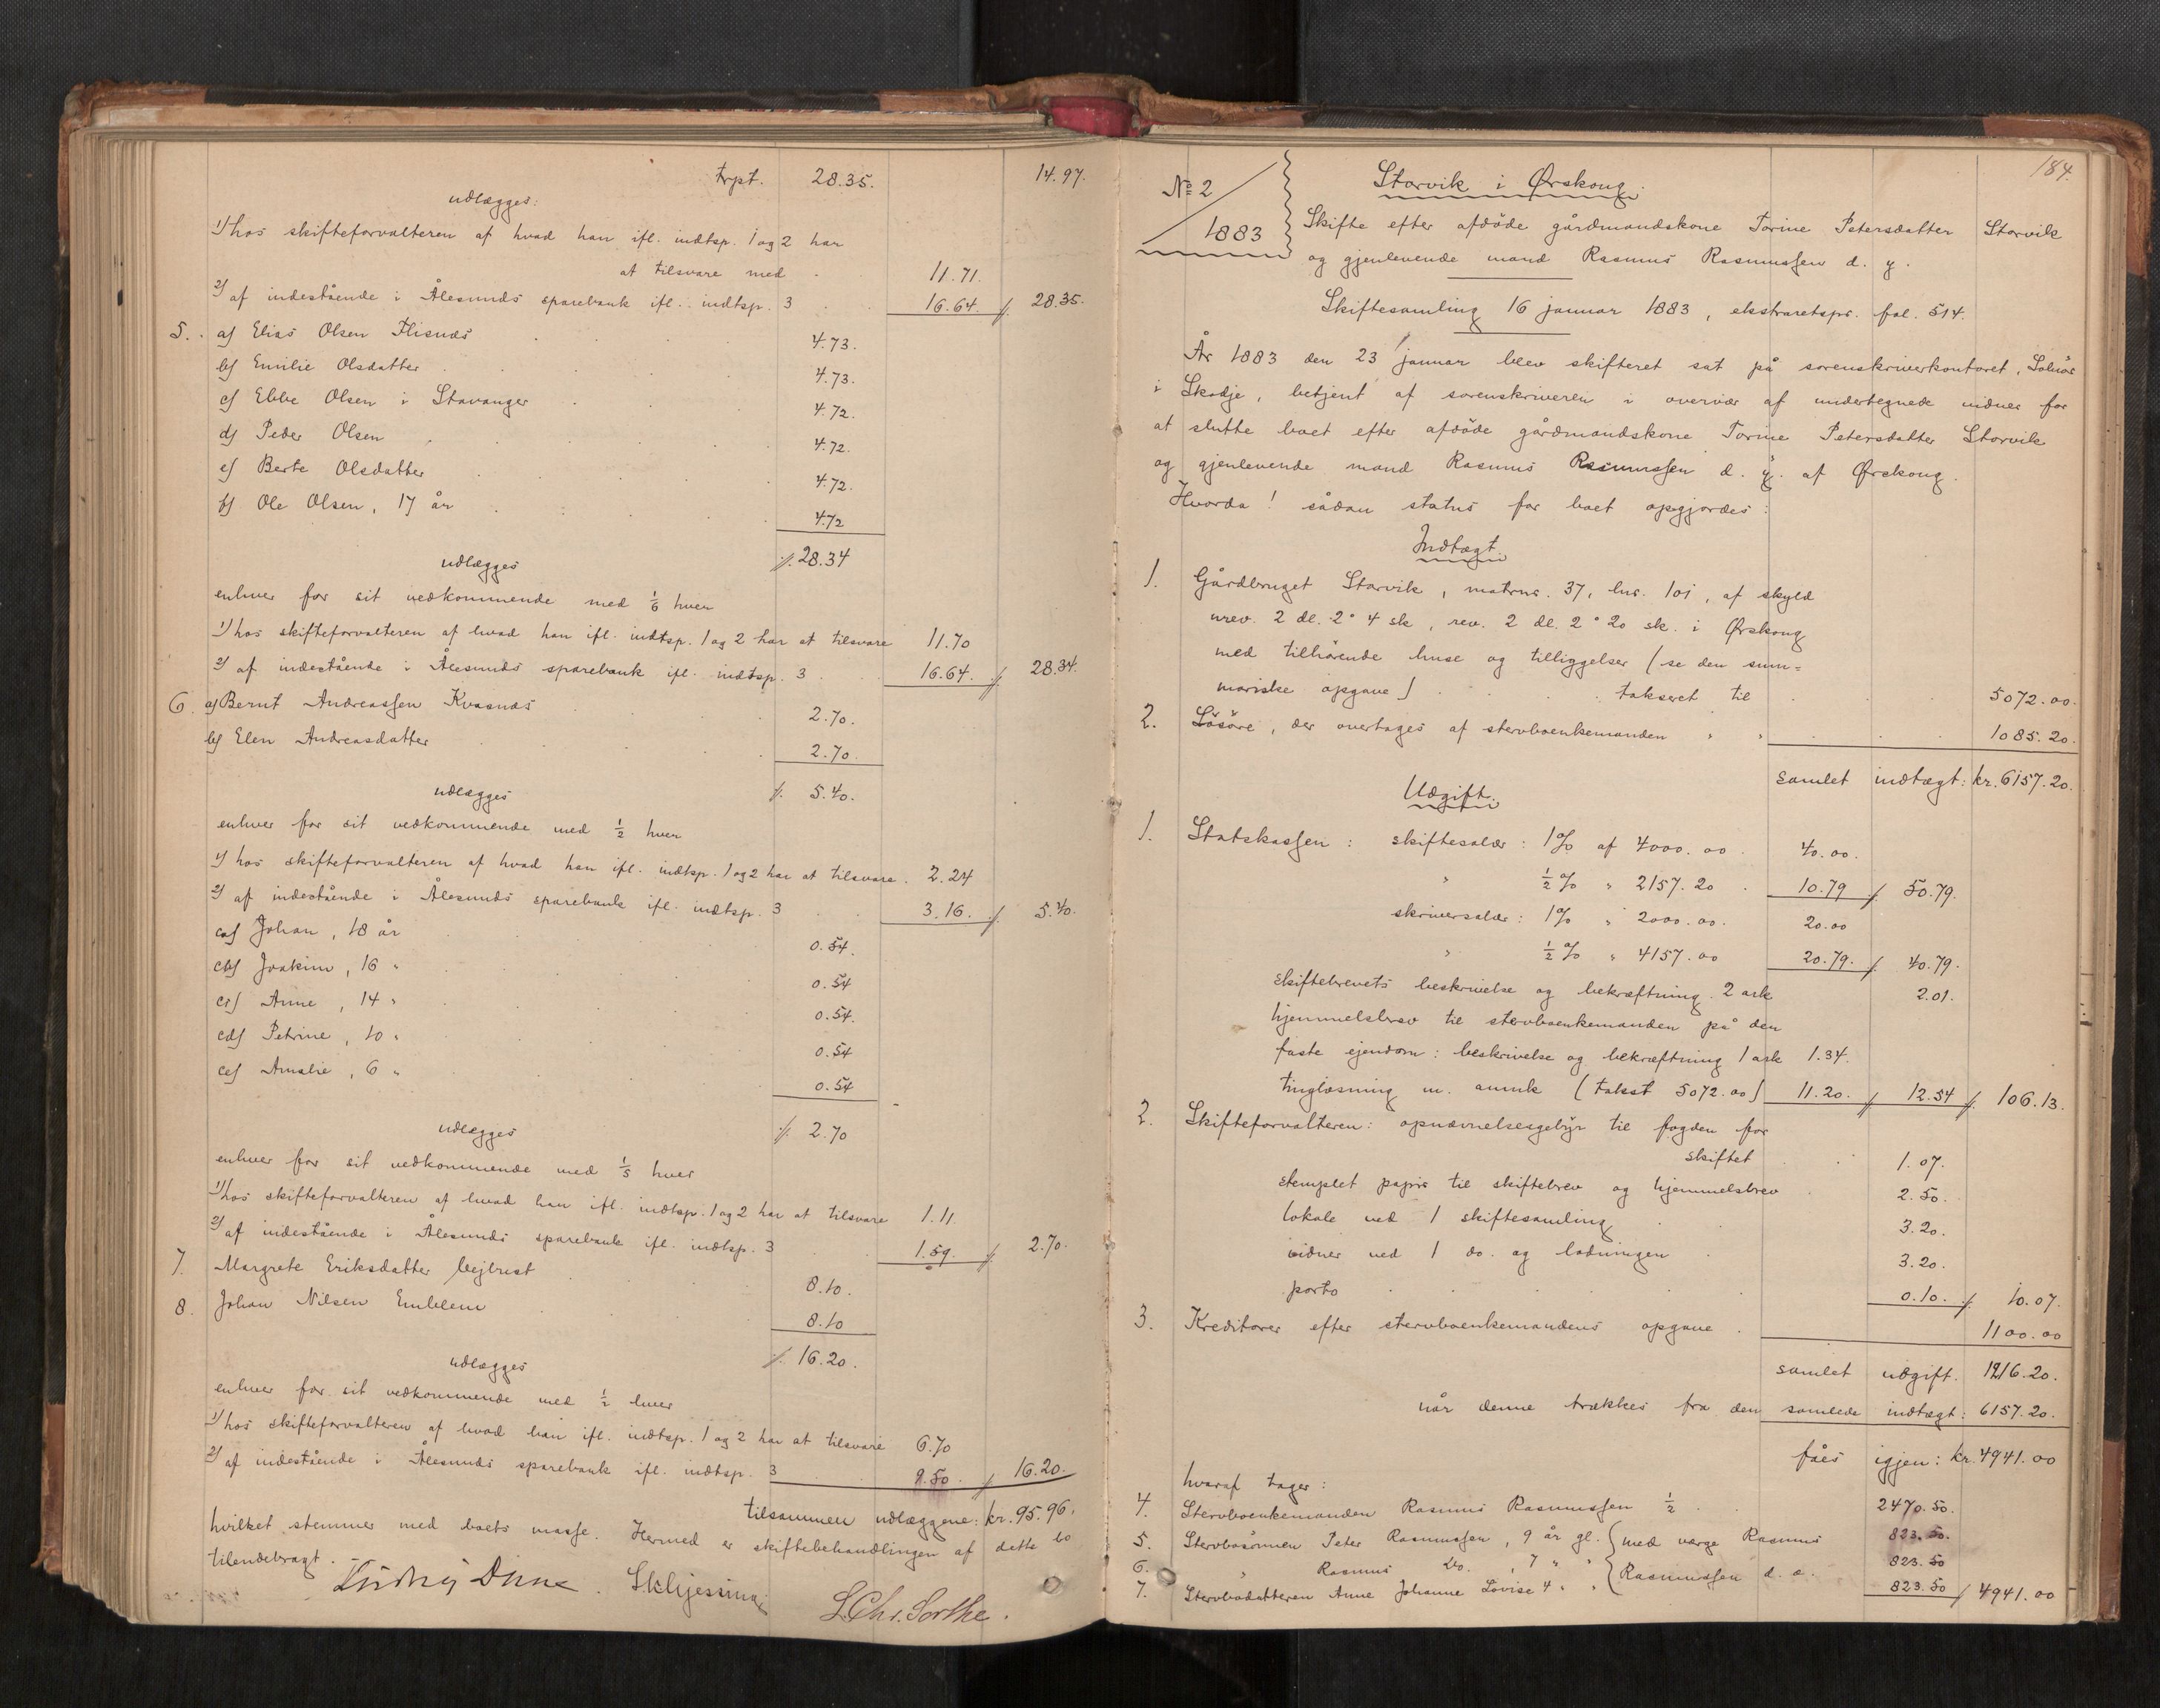 trpt. 28.35. 14.97.
udlægges:
1) hos skifteforvalteren af hvad han ifl. indtsp. 1 og 2 har
at tilsvare med . 11.71.
2) af indestående i Ålesunds sparebank ifl. indtsp. 3 . . 16.64. ./. 28.35.
5. a) Elias Olsen Flisnæs . . . 4.73.
b) Emilie Olsdatter . . . 4.73.
c) Ebbe Olsen i Stavanger . . 4.72.
d) Peder Olsen . . . 4.72.
e) Berte Olsdatter . . . 4.72.
f) Ole Olsen, 17 år . . . 4.72
udlægges ./. 28.34
enhver for sit vedkommende med 1/6 hver
1) hos skifteforvalteren af hvad han ifl. indtsp. 1 og 2 har at tilsvare 11.70
2) af indestående i Ålesunds sparebank ifl. indtsp. 3 . . 16.64. ./. 28.34.
6. a) Bernt Andreassen Kvasnæs . . 2.70.
b) Elen Andreasdatter . . . 2.70.
udlægges ./. 5.40.
enhver for sit vedkommende med 1/2 hver
1) hos skifteforvalteren af hvad han ifl. indtsp. 1 og 2 har at tilsvare . 2.24
2) af indestående i Ålesunds sparebank ifl. indtsp. 3 . . 3.16. ./. 5.40.
ca) Johan, 18 år . . . 0.54.
cb) Joakim, 16 " . . . 0.54
cc) Anne, 14 " . . . 0.54.
cd) Petrine, 10 " . . . 0.54
ce) Amalie, 6 " . . . 0.54
udlægges ./. 2.70
enhver for sit vedkommende med 1/5 hver
1) hos skifteforvalteren af hvad han ifl. indtsp. 1 og 2 har at tilsvare 1.11.
2) af indestående i Ålesunds sparebank ifl. indtsp. 3 . . 1.59. ./. 2.70.
7. Margrete Eriksdatter Vejbust . . 8.10.
8. Johan Nilsen Emblem . . 8.10
udlægges ./. 16.20.
enhver for sit vedkommende med 1/2 hver
1) hos skifteforvalteren af hvad han ifl. indtsp. 1 og 2 har at tilsvare 6.70
2) af indestående i Ålesunds sparebank ifl. indtsp. 3 . . 9.50. ./. 16.20.
tilsammen udlæggene: kr. 95.96.
hvilket stemmer med boets masse. Hermed er skiftebehandlingen af dette bo
tilendebragt.
L.Chr. Sorthe.
184.
No 2
1883
Storvik i Ørskoug.
Skifte efter afdöde gårdmandskone Torine Petersdatter Storvik
og gjenlevende mand Rasmus Rasmussen d. y.
Skiftesamling 16 januar 1883, ekstraretspr. fol. 514.
År 1883 den 23 januar blev skifteret sat på sorenskriverkontoret, Solnör
i Skodje, betjent af sorenskriveren i overvær af undertegnede vidner for
at slutte boet efter afdöde gårdmandskone Torine Petersdatter Storvik
og gjenlevende mand Rasmus Rasmussen d. y. af Ørskoug.
Hvorda! sådan status for boet opgjordes:
Indtægt.
1. Gårdbruget Storvik, matrnr. 37, lnr. 101, af skyld
urev. 2 dl. 2 ° 4 sk, rev. 2 dl. 2 ° 20 sk. i Ørskoug
med tilhörende huse og tilliggelser (se den sum=
mariske opgave) . . . takseret til . . 5072.00.
2. Lösöre, der overtages af stervboenkemanden " " . . 1085.20.
samlet indtægt: kr. 6157.20.
Udgift.
1. Statskassen: skiftesalær: 1% af 4000.00. 40.00.
" 1/2 % " 2157.20 . 10.79 ./. 50.79.
skriversalær: 1% " 2000.00. 20.00
" 1/2 % " 4157.00 20.79. ./. 40.79.
skiftebrevets beskrivelse og bekræftning. 2 ark 2.01.
hjemmelsbrev til stervboenkemanden på den
faste ejendom: beskrivelse og bekræftning 1 ark 1.34.
tinglæsning m. anmk (takst 5072.00) 11.20. ./. 12.54 ./. 106.13.
2. Skifteforvalteren: opnævnelsesgebyr til fogden for
skiftet . . 1.07.
stemplet papir til skiftebrev og hjemmelsbrev . 2.50.
lokale ved 1 skiftesamling . . 3.20.
vidner ved 1 do. og lodningen . . 3.20.
porto . . . . 0.10. ./. 10.07.
3. Kreditorer efter stervboenkemandens opgave . 1100.00
samlet udgift. 1216.20.
når denne trækkes fra den samlede indtægt: 6157.20.
fåes igjen: kr. 4941.00
hvoraf tager:
4. Stervboenkemanden Rasmus Rasmussen 1/2 . 2470.50.
5. Stervbosönnen Peter Rasmussen, 9 år gl. { med værge Rasmus 823.50.
6. " Rasmus do. , 7 " " { Rasmussen d. æ. 823.50
7. Stervbodatteren Anne Johanne Lovise 4 " " 823.50 ./. 4941.00